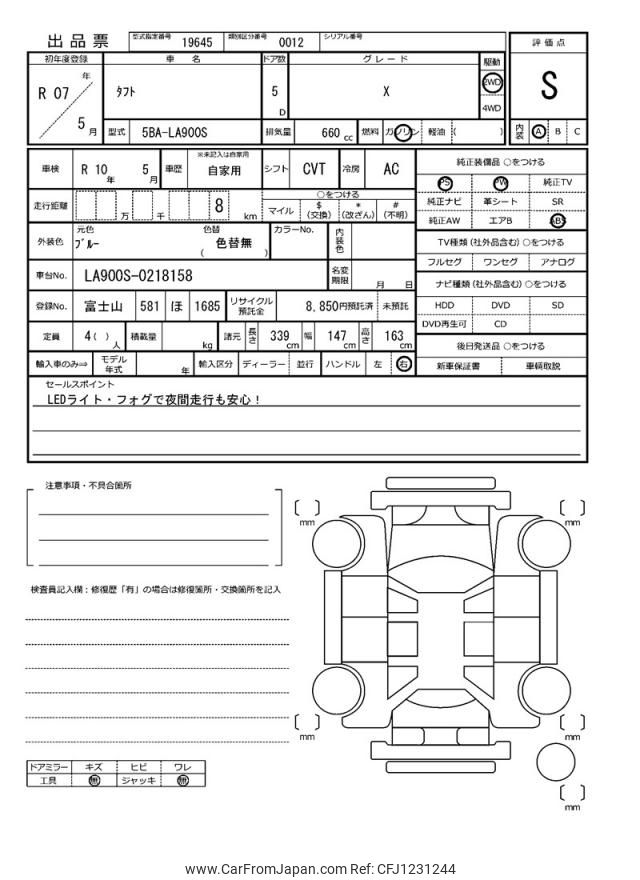 出品票
型式指定番号 19645 類別区分番号 0012 シリアル番号
評価点
初年度登録 車名 ドア数 グレード 駆動
R 07 年 5 月
タフト 5 D X 2WD 4WD
S
型式 5BA-LA900S 排気量 660 cc 燃料 ガソリン 軽油 ( )
内装 A B C
車検 R 10 年 5 月 車歴 ※未記入は自家用 自家用 シフト CVT 冷房 AC
純正装備品 ○をつける
PS PW 純正TV
走行距離 万 千 8 km
○をつける
マイル $ (交換) * (改ざん) # (不明)
純正ナビ 革シート SR
純正AW エアB ABS
外装色 元色 ブルー 色替 色替無 ( ) カラーNo. 内装色
TV種類 (社外品含む) ○をつける
フルセグ ワンセグ アナログ
車台No. LA900S-0218158 名変期限 月 日
ナビ種類 (社外品含む) ○をつける
登録No. 富士山 581 ほ 1685 リサイクル預託金 8,850円預託済 未預託
HDD DVD SD
DVD再生可 CD
定員 4 ( ) 人 積載量 kg 諸元 長さ 339 cm 幅 147 cm 高さ 163 cm
後日発送品 ○をつける
輸入車のみ⇒ モデル年式 年 輸入区分 ディーラー 並行 ハンドル 左 右
新車保証書 車輌取説
セールスポイント
LEDライト・フォグで夜間走行も安心！
注意事項・不具合箇所
[ ] mm
[ ] mm
検査員記入欄：修復歴「有」の場合は修復箇所・交換箇所を記入
[ ] mm
[ ] mm
ドアミラー キズ ヒビ ワレ
工具 無 ジャッキ 無
[ ] mm
www.CarFromJapan.com Ref: CFJ1231244